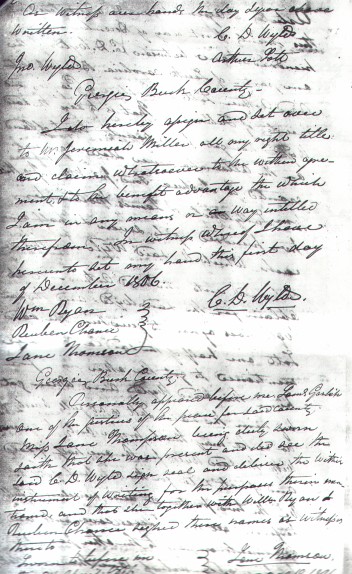 In witness our hands the day & year above
written.
C. D. Wylds
Jno. Wylds Arthur Fott
Georgia Burk County
I do hereby assign and set over
to Wm Jeremiah Miller all my right title
and claim whatsoever to the within agree-
ment, & to the benefit advantage the which
I am in any means or a way intitled
therefrom. In witness whereof I have
hereunto set my hand this first day
of December 1806
C. D. Wylds.
Wm Ryan
Reuben Chance
Jane Thomson
Georgia Burk County
Personally appeared before me
one of the justices of the peace for said county
Jane Thompson being duly sworn
saith that she was present and did see the
said C. D. Wylds sign seal and deliver the within
instrument of writing for the purposes therein men
tioned, and that she together with William Ryan &
Reuben Chance signed their names as witnesses
thereto
sworn before me Jane Thomson